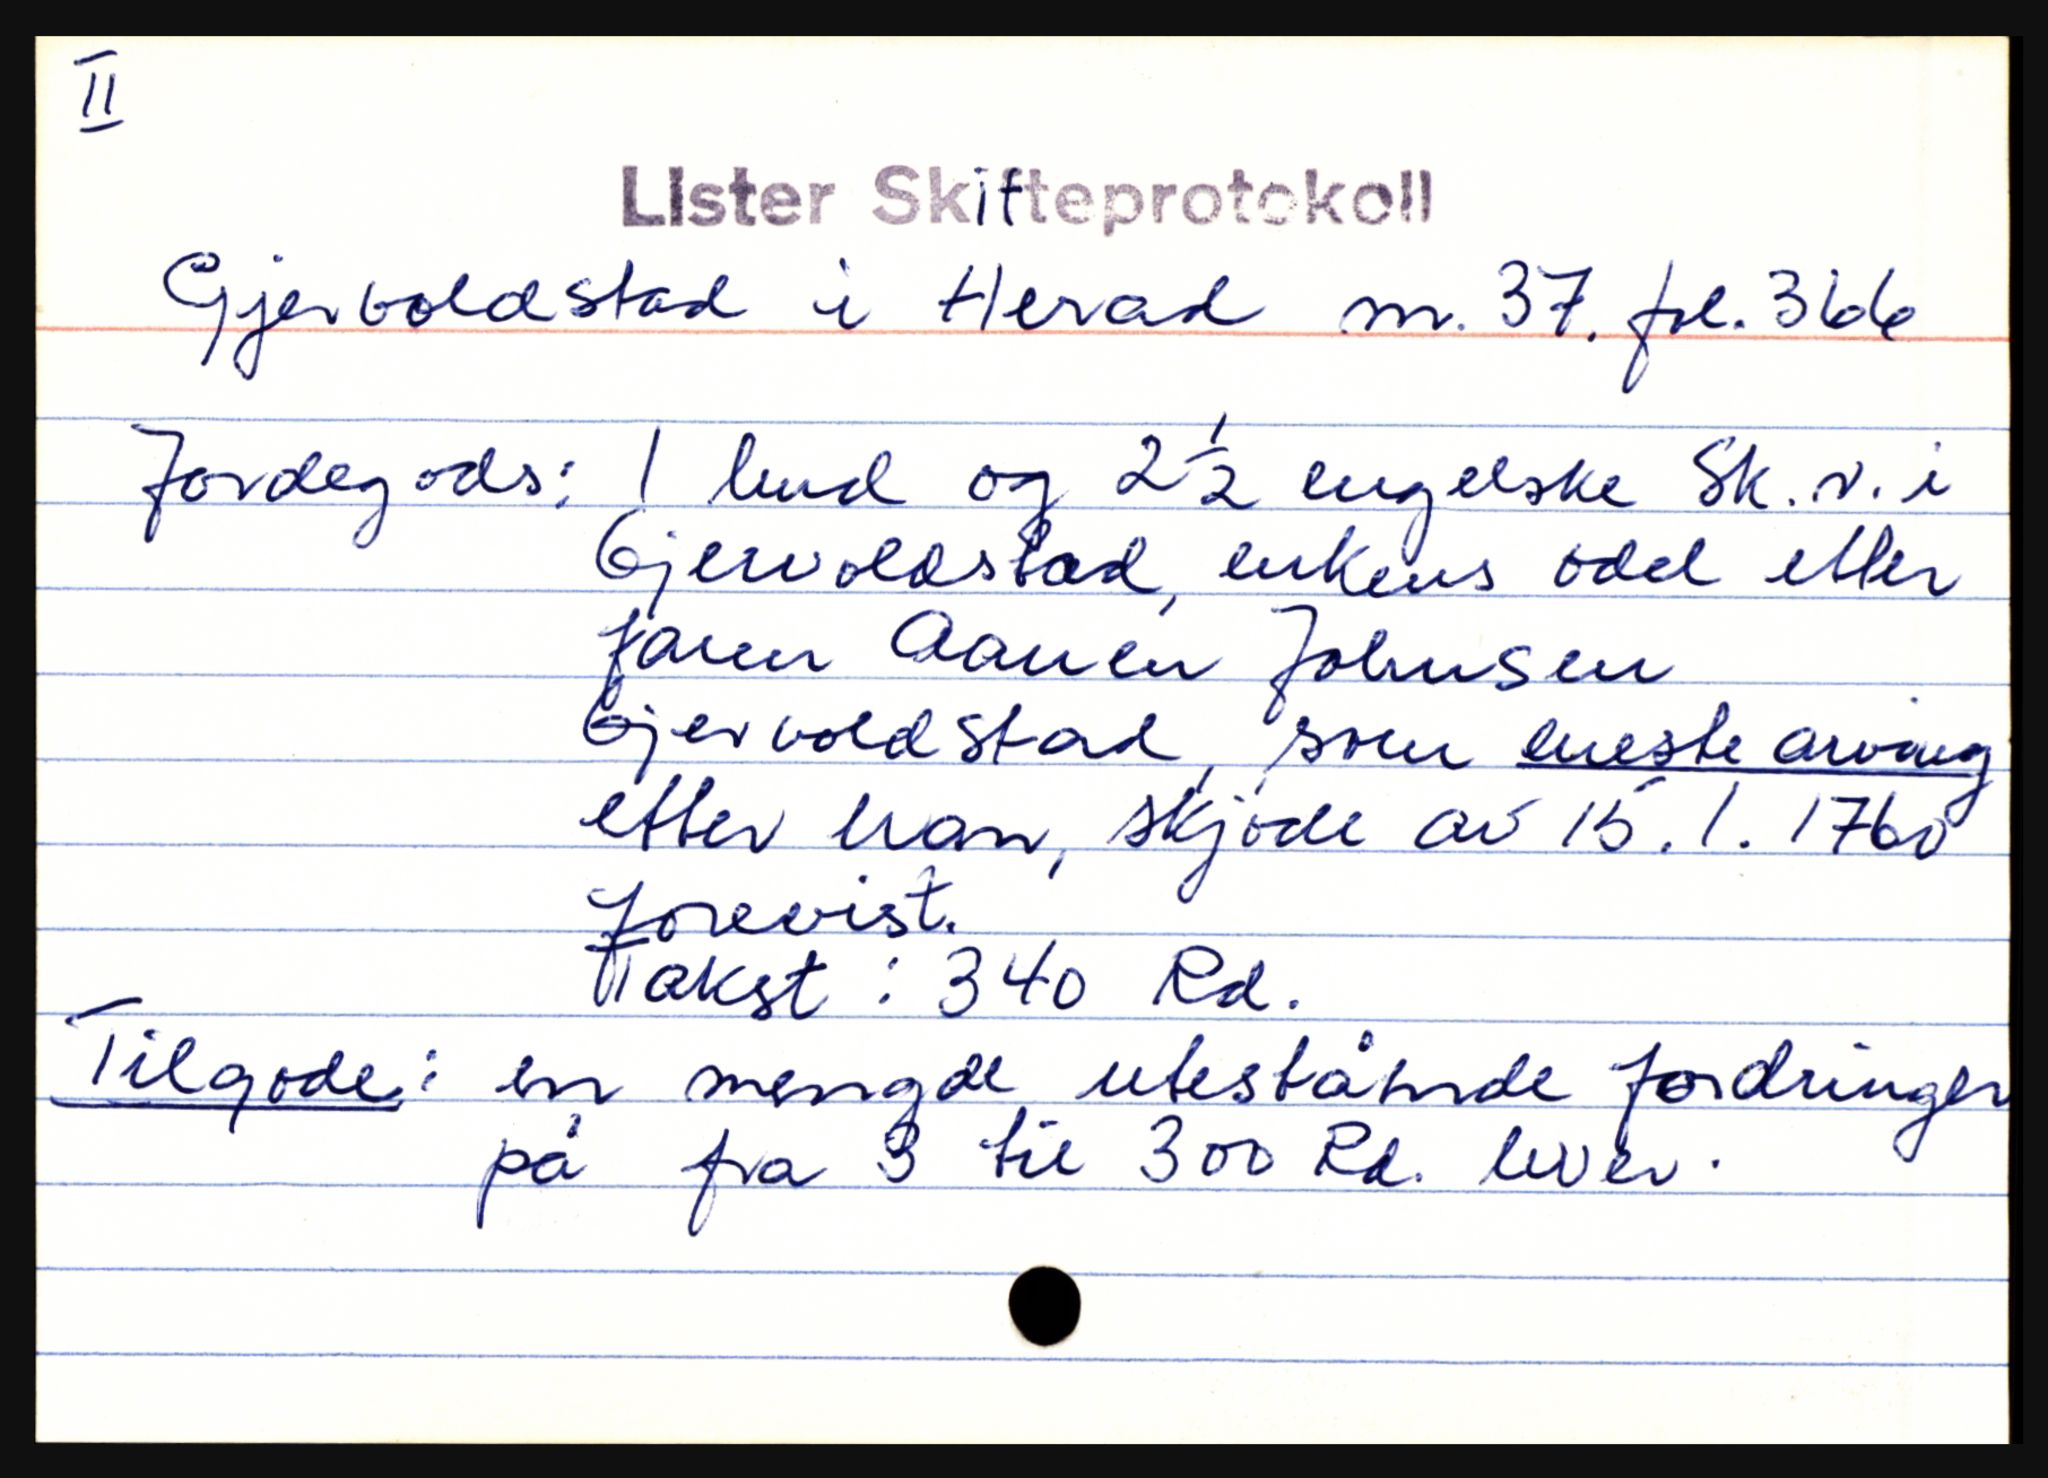 II
Lister Skifteprotokoll
Gjervoldstad i Herad nr. 37. fol. 366
Jordegods: 1 hud og 2 1/2 engelske Sk. v. i
Gjervoldstad, enkens odel etter
faren Aanen Johnsen
Gjervoldstad, som eneste arving
etter han, skjöde av 15. 1. 1760
forevist.
Takst: 340 Rd.
Tilgode: en mengde utestående fordringer
på fra 3 til 300 Rd. hver.